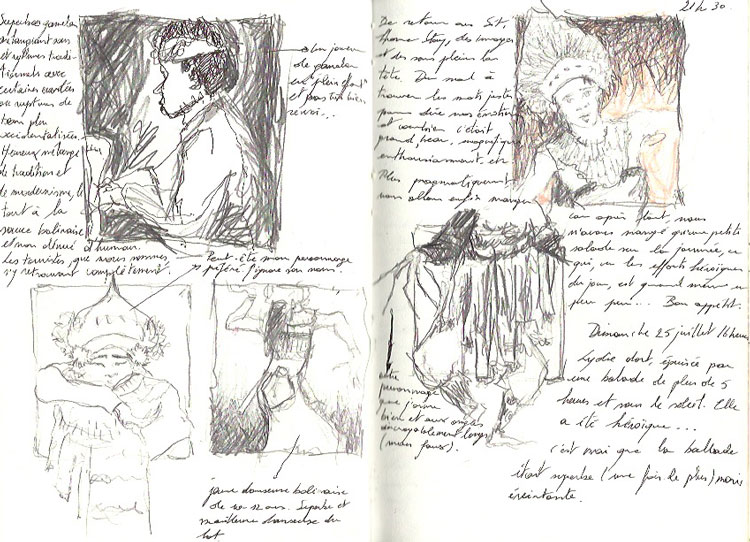 Superbes gamelan
et rythmes tradi-
tionnels avec
certaines variétés
ou ruptures de
tons plus
occidentalisées.
Heureux mélange
de tradition et
de modernisme, le
tout à la
sauce balinaise
et non dénué d'humour.
Les touristes, que nous sommes,
s'y retrouvent complètement.
Un joueur
de gamelan
en "plein effort"
et pas très bien
réussi...
Peut-être mon personnage
préféré. J'ignore son nom.
jeune danseuse balinaise
de 10-12 ans. Superbe et
meilleure danseuse du
lot.
21h 30.
De retour au Siti
Home Stay, des images
et des sons plein la
tête. Du mal à
trouver les mots justes
pour dire nos émotions
et combien c'était
grand, beau, magnifique,
enthousiasmant. etc
Plus pragmatiquement
nous allons enfin manger
car après tout, nous
n'avons mangé qu'une petite
salade sur la journée, ce
qui, vu les efforts héroïques
du jour, est quand même un
peu peu... Bon appétit.
Dimanche 25 juillet 16 heures
Lydie dort, épuisée par
une balade de plus de 5
heures et sous le soleil. Elle
a été héroïque...
c'est vrai que la ballade
était superbe (une fois de plus) mais
éreintante.
Autre
personnage
que j'aime
bien et aux ongles
incroyablement longs
(mais faux).